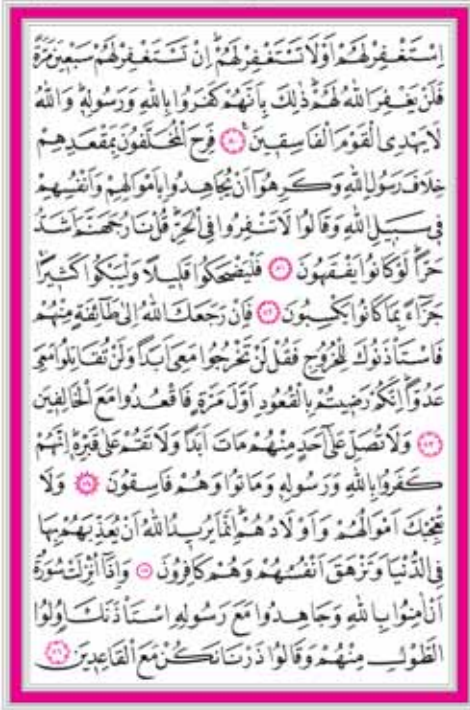 اِسْتَغْفِرْ لَهُمْ اَوْ لَا تَسْتَغْفِرْ لَهُمْ اِنْ تَسْتَغْفِرْ لَهُمْ سَبْعٖينَ مَرَّةً
فَلَنْ يَغْفِرَ اللّٰهُ لَهُمْ ذٰلِكَ بِاَنَّهُمْ كَفَرُوا بِاللّٰهِ وَرَسُولِهٖ وَاللّٰهُ
لَا يَهْدِى الْقَوْمَ الْفَاسِقٖينَ ﴿٨٠﴾ فَرِحَ الْمُخَلَّفُونَ بِمَقْعَدِهِمْ
خِلَافَ رَسُولِ اللّٰهِ وَكَرِهُٓوا اَنْ يُجَاهِدُوا بِاَمْوَالِهِمْ وَاَنْفُسِهِمْ
فٖى سَبٖيلِ اللّٰهِ وَقَالُوا لَا تَنْفِرُوا فِى الْحَرِّ قُلْ نَارُ جَهَنَّمَ اَشَدُّ
حَرًّا لَوْ كَانُوا يَفْقَهُونَ ﴿٨١﴾ فَلْيَضْحَكُوا قَلٖيلًا وَلْيَبْكُوا كَثٖيرًا
جَزَٓاءً بِمَا كَانُوا يَكْسِبُونَ ﴿٨٢﴾ فَاِنْ رَجَعَكَ اللّٰهُ اِلٰى طَٓائِفَةٍ مِنْهُمْ
فَاسْتَأْذَنُوكَ لِلْخُرُوجِ فَقُلْ لَنْ تَخْرُجُوا مَعِىَ اَبَدًا وَلَنْ تُقَاتِلُوا مَعِىَ
عَدُوًّا اِنَّكُمْ رَضٖيتُمْ بِالْقُعُودِ اَوَّلَ مَرَّةٍ فَاقْعُدُوا مَعَ الْخَالِفٖينَ
﴿٨٣﴾ وَلَا تُصَلِّ عَلٰٓى اَحَدٍ مِنْهُمْ مَاتَ اَبَدًا وَلَا تَقُمْ عَلٰى قَبْرِهٖ اِنَّهُمْ
كَفَرُوا بِاللّٰهِ وَرَسُولِهٖ وَمَاتُوا وَهُمْ فَاسِقُونَ ﴿٨٤﴾ وَلَا
تُعْجِبْكَ اَمْوَالُهُمْ وَاَوْلَادُهُمْ اِنَّمَا يُرٖيدُ اللّٰهُ اَنْ يُعَذِّبَهُمْ بِهَا
فِى الدُّنْيَا وَتَزْهَقَ اَنْفُسُهُمْ وَهُمْ كَافِرُونَ ﴿٨٥﴾ وَاِذَٓا اُنْزِلَتْ سُورَةٌ
اَنْ اٰمِنُوا بِاللّٰهِ وَجَاهِدُوا مَعَ رَسُولِهِ اسْتَأْذَنَكَ اُولُوا
الطَّوْلِ مِنْهُمْ وَقَالُوا ذَرْنَا نَكُنْ مَعَ الْقَاعِدٖينَ ﴿٨٦﴾